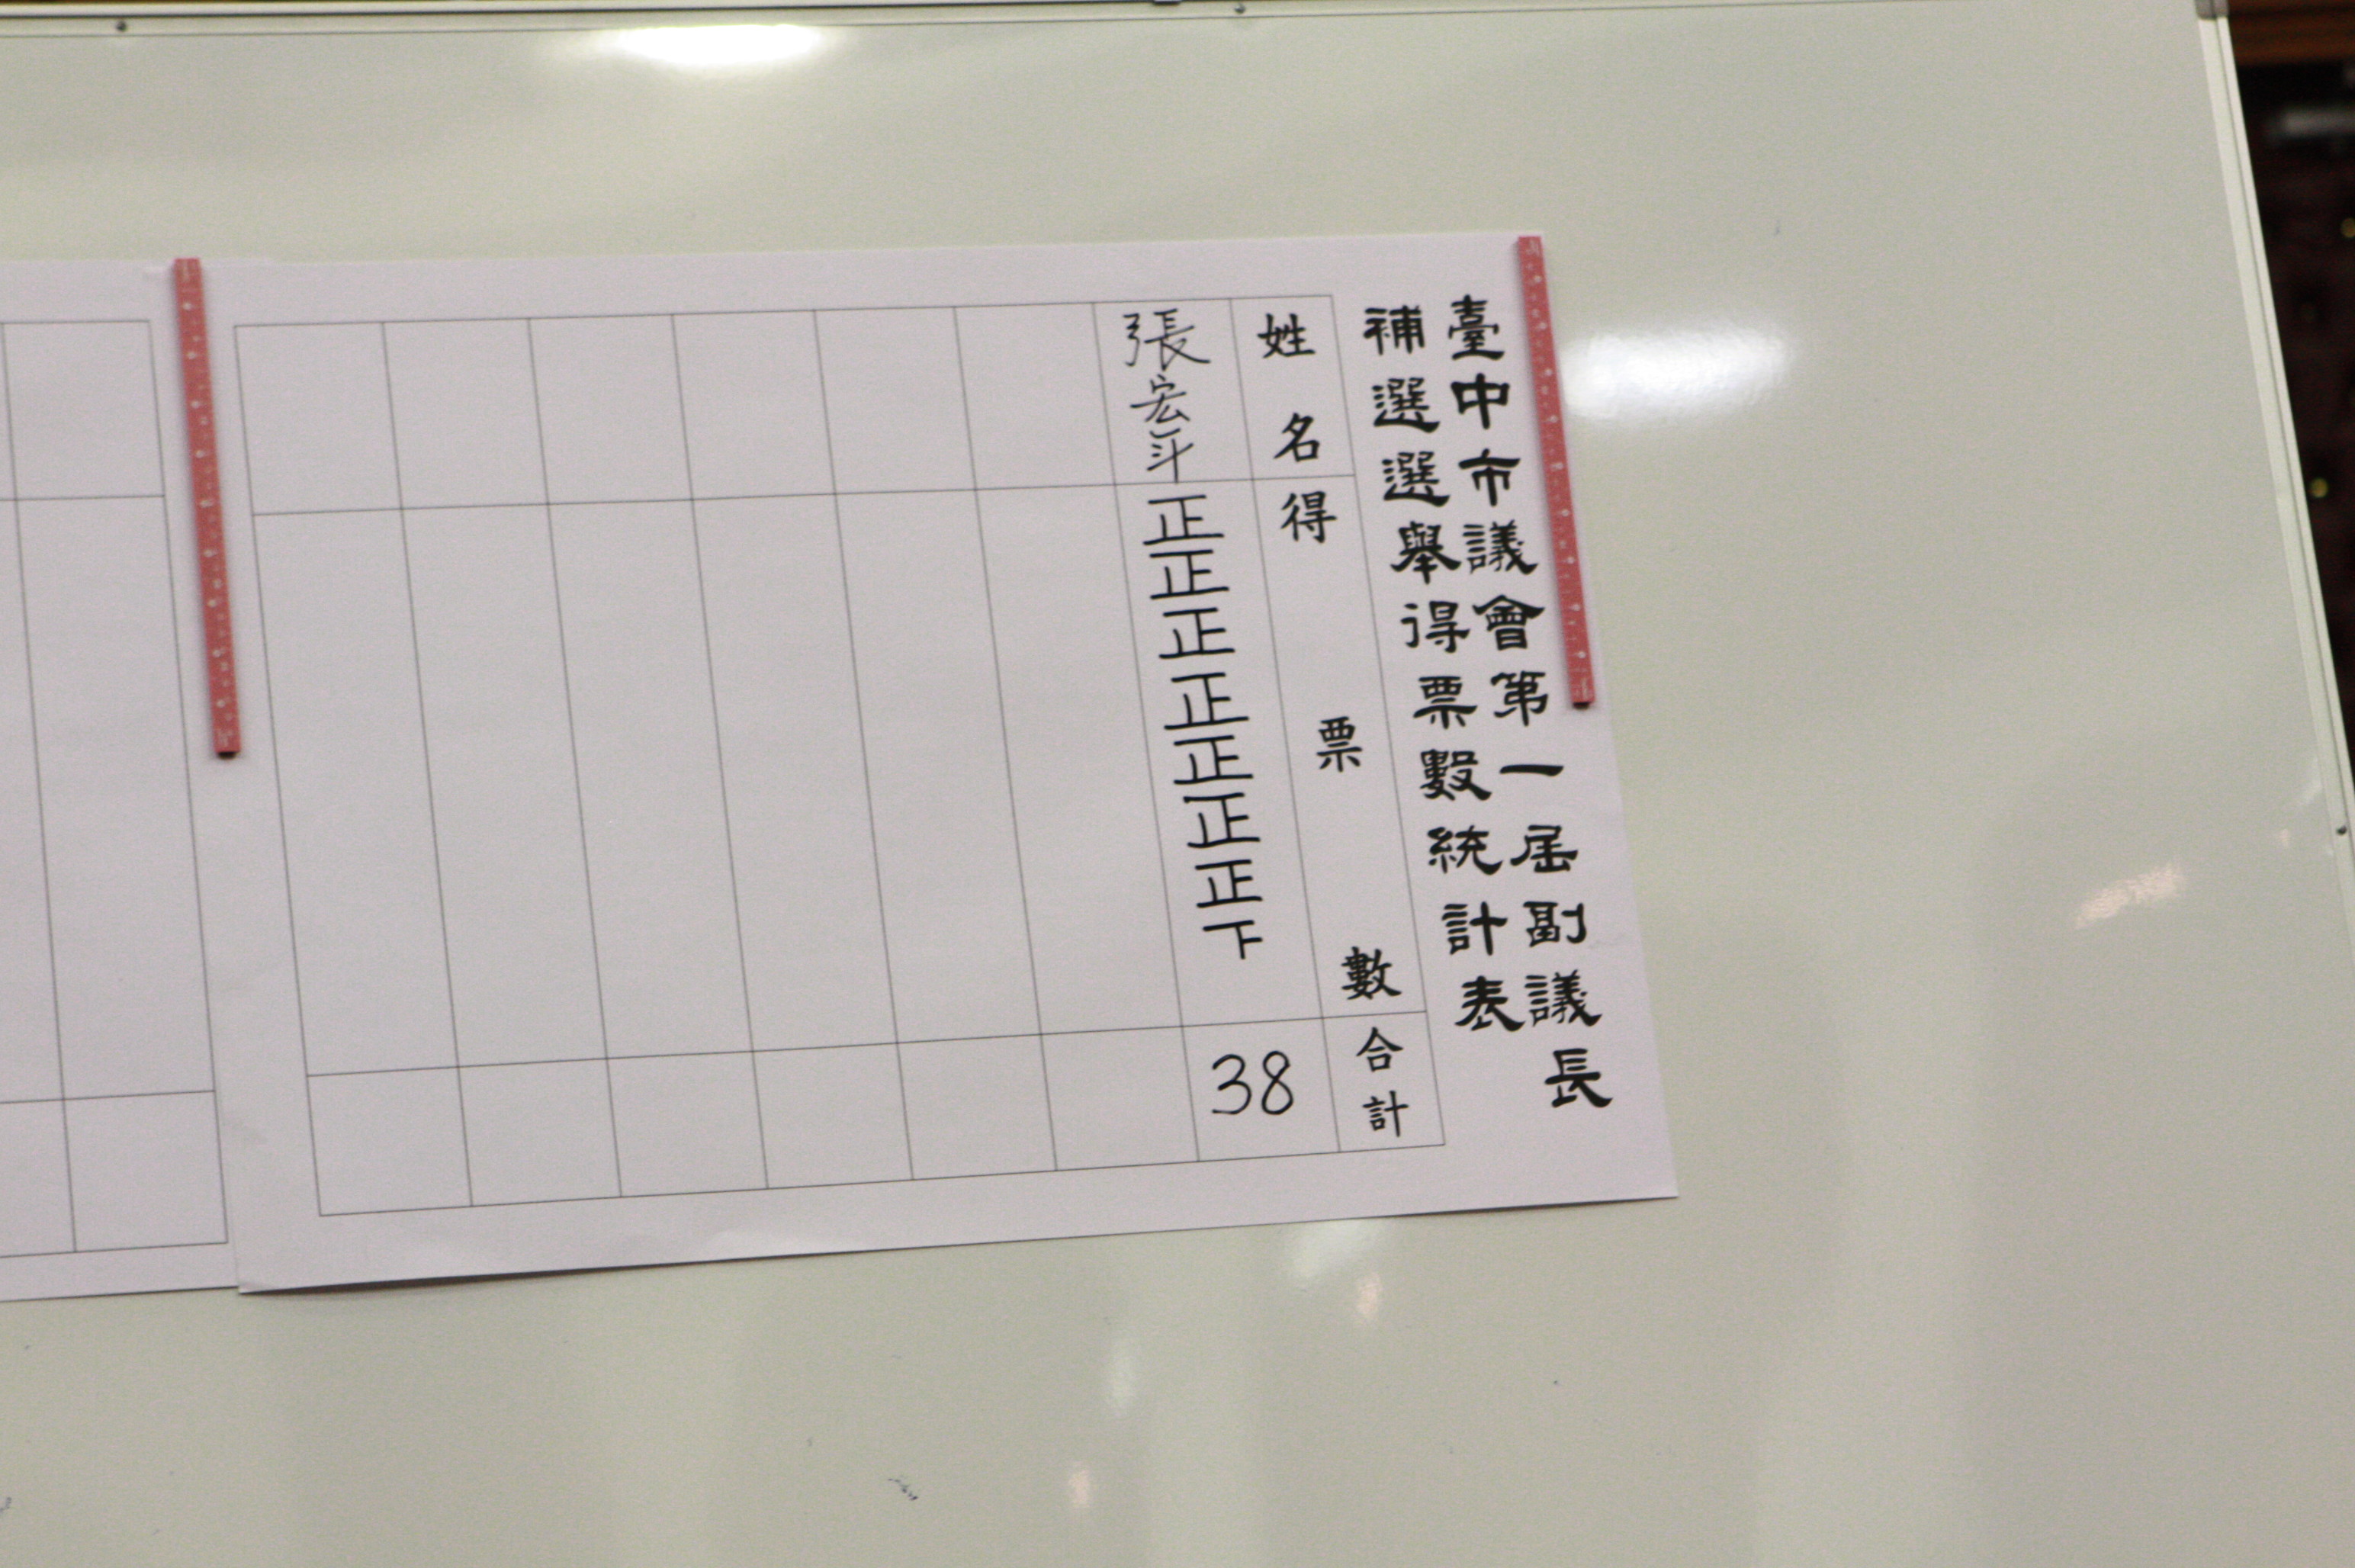 臺中市議會第一屆副議長
補選選舉得票數統計表
姓名
得票數
合計
張宏年
正正正正正正正下
38